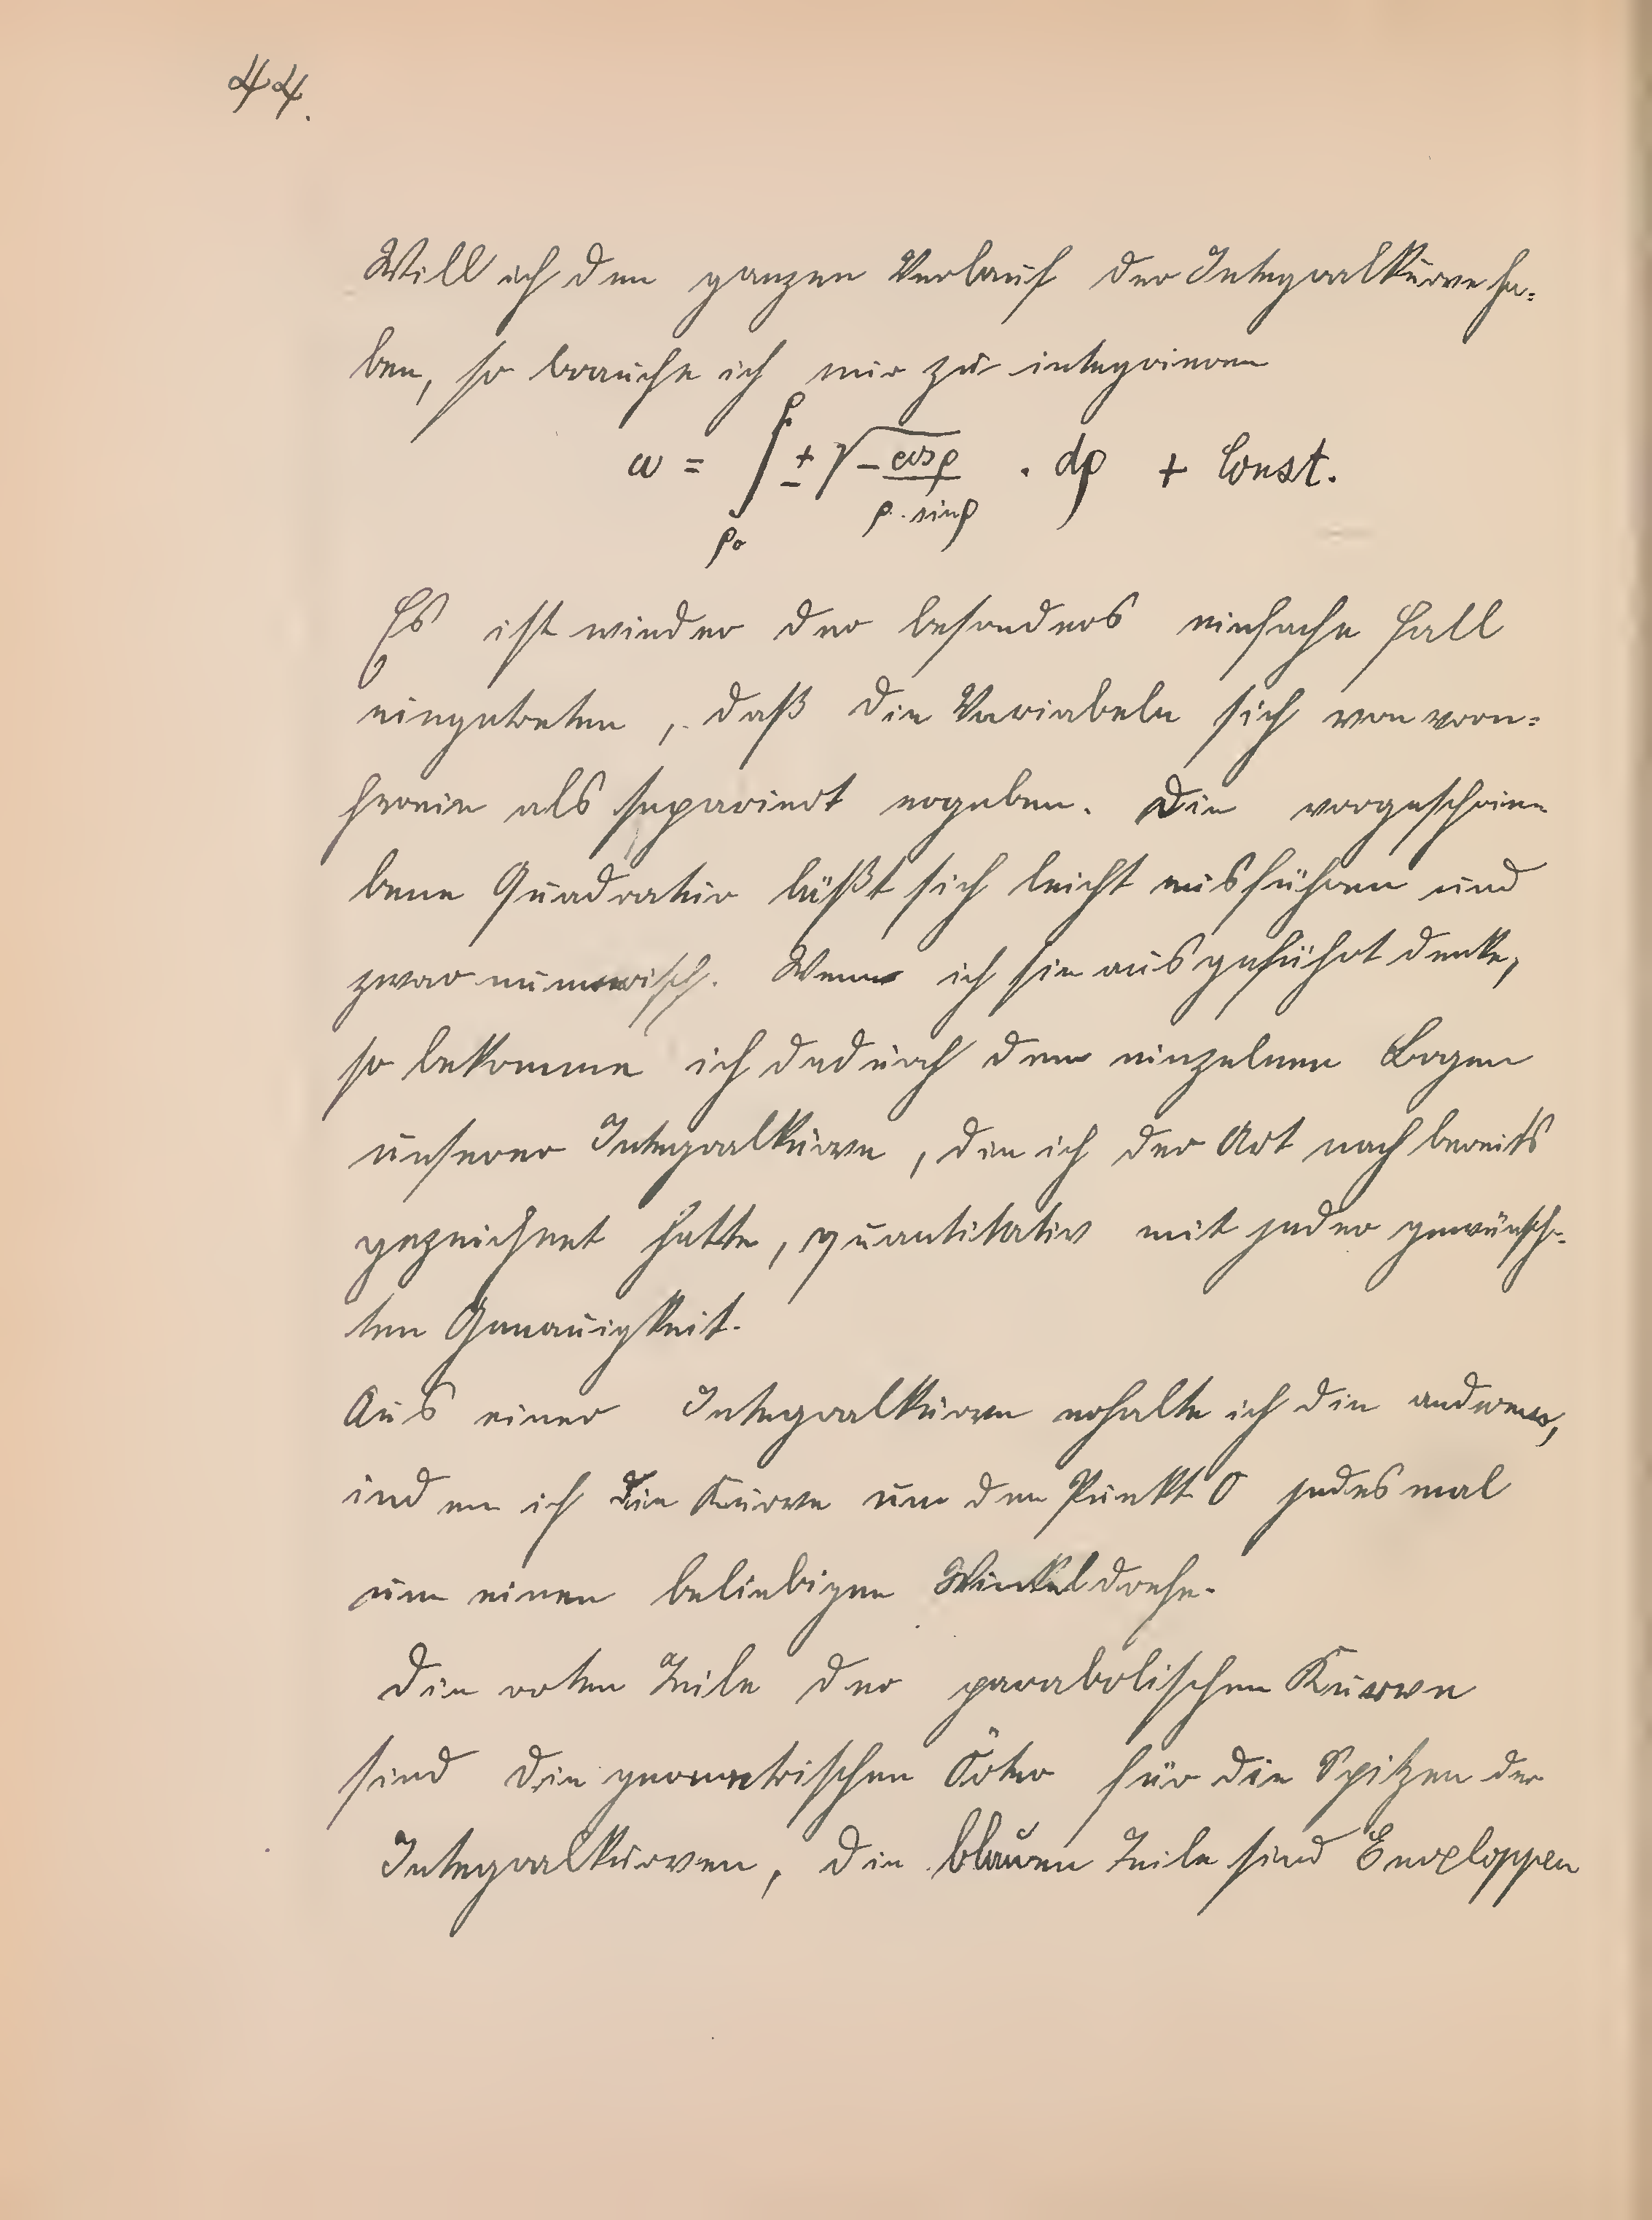 44.
Will ich den ganzen Verlauf der Integralkurve ha-
ben, so brauche ich nur zu integrieren
ω = ∫_{ρ₀}^{ρ} ± √(- cos ρ / ρ · sin ρ) · dρ + Const.
Es ist wieder der besonders einfache Fall
eingetreten, daß die Variabeln sich von vorn-
herein als separiert ergeben. Die vorgeschrie-
bene Quadratur läßt sich leicht ausführen und
zwar numerisch. Wenn ich sie ausgeführt denke,
so bekomme ich dadurch den einzelnen Bogen
unserer Integralkurve, die ich der Art nach bereits
gezeichnet hatte, quantitativ mit jeder gewünsch-
ten Genauigkeit.
Aus einer Integralkurve erhalte ich die anderen,
indem ich die Kurve um den Punkt O jedesmal
um einen beliebigen Winkel drehe.
Die roten Teile der parabolischen Kurve
sind die geometrischen Örter für die Spitzen der
Integralkurven, die blauen Teile sind Enveloppen